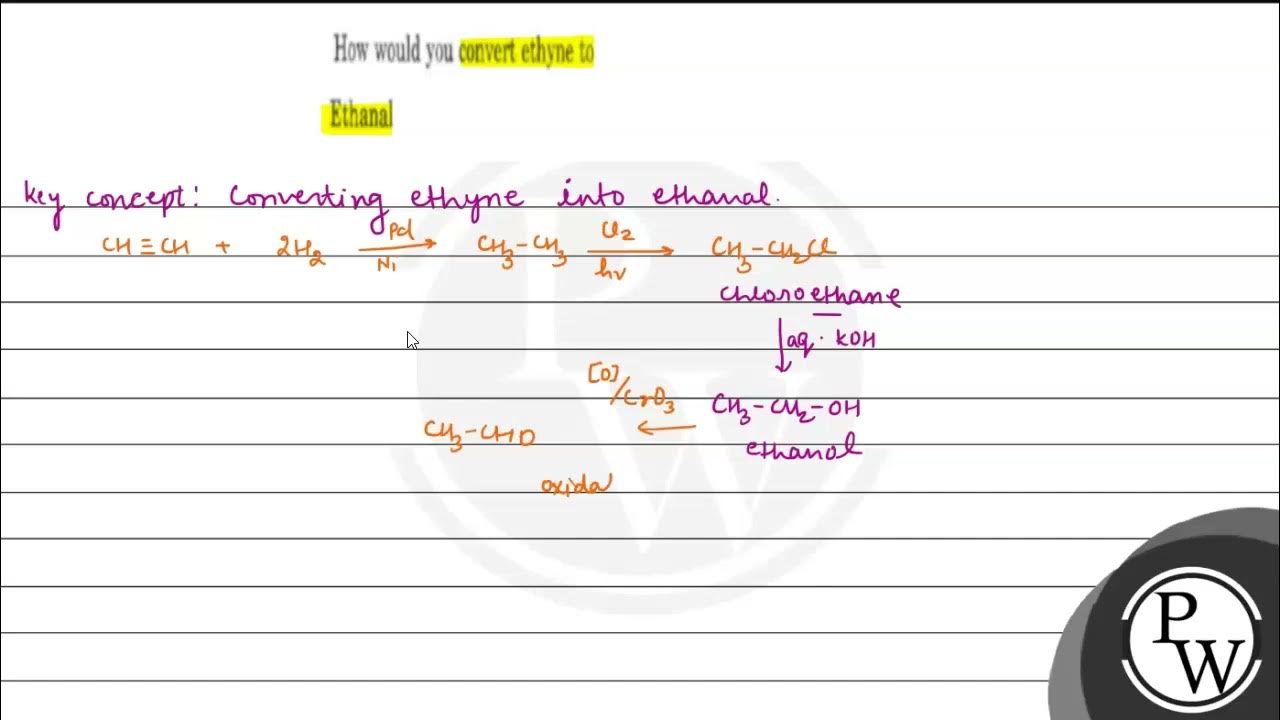 How would you convert ethyne to
Ethanal
Key concept: Converting ethyne into ethanal.
CH≡CH + 2H₂ Pd/Ni → CH₃-CH₃ Cl₂/hν → CH₃-CH₂Cl
Chloroethane
↓ aq. KOH
[O]/CrO₃
CH₃-CHO ← CH₃-CH₂-OH
ethanol
oxida
P
W
PW